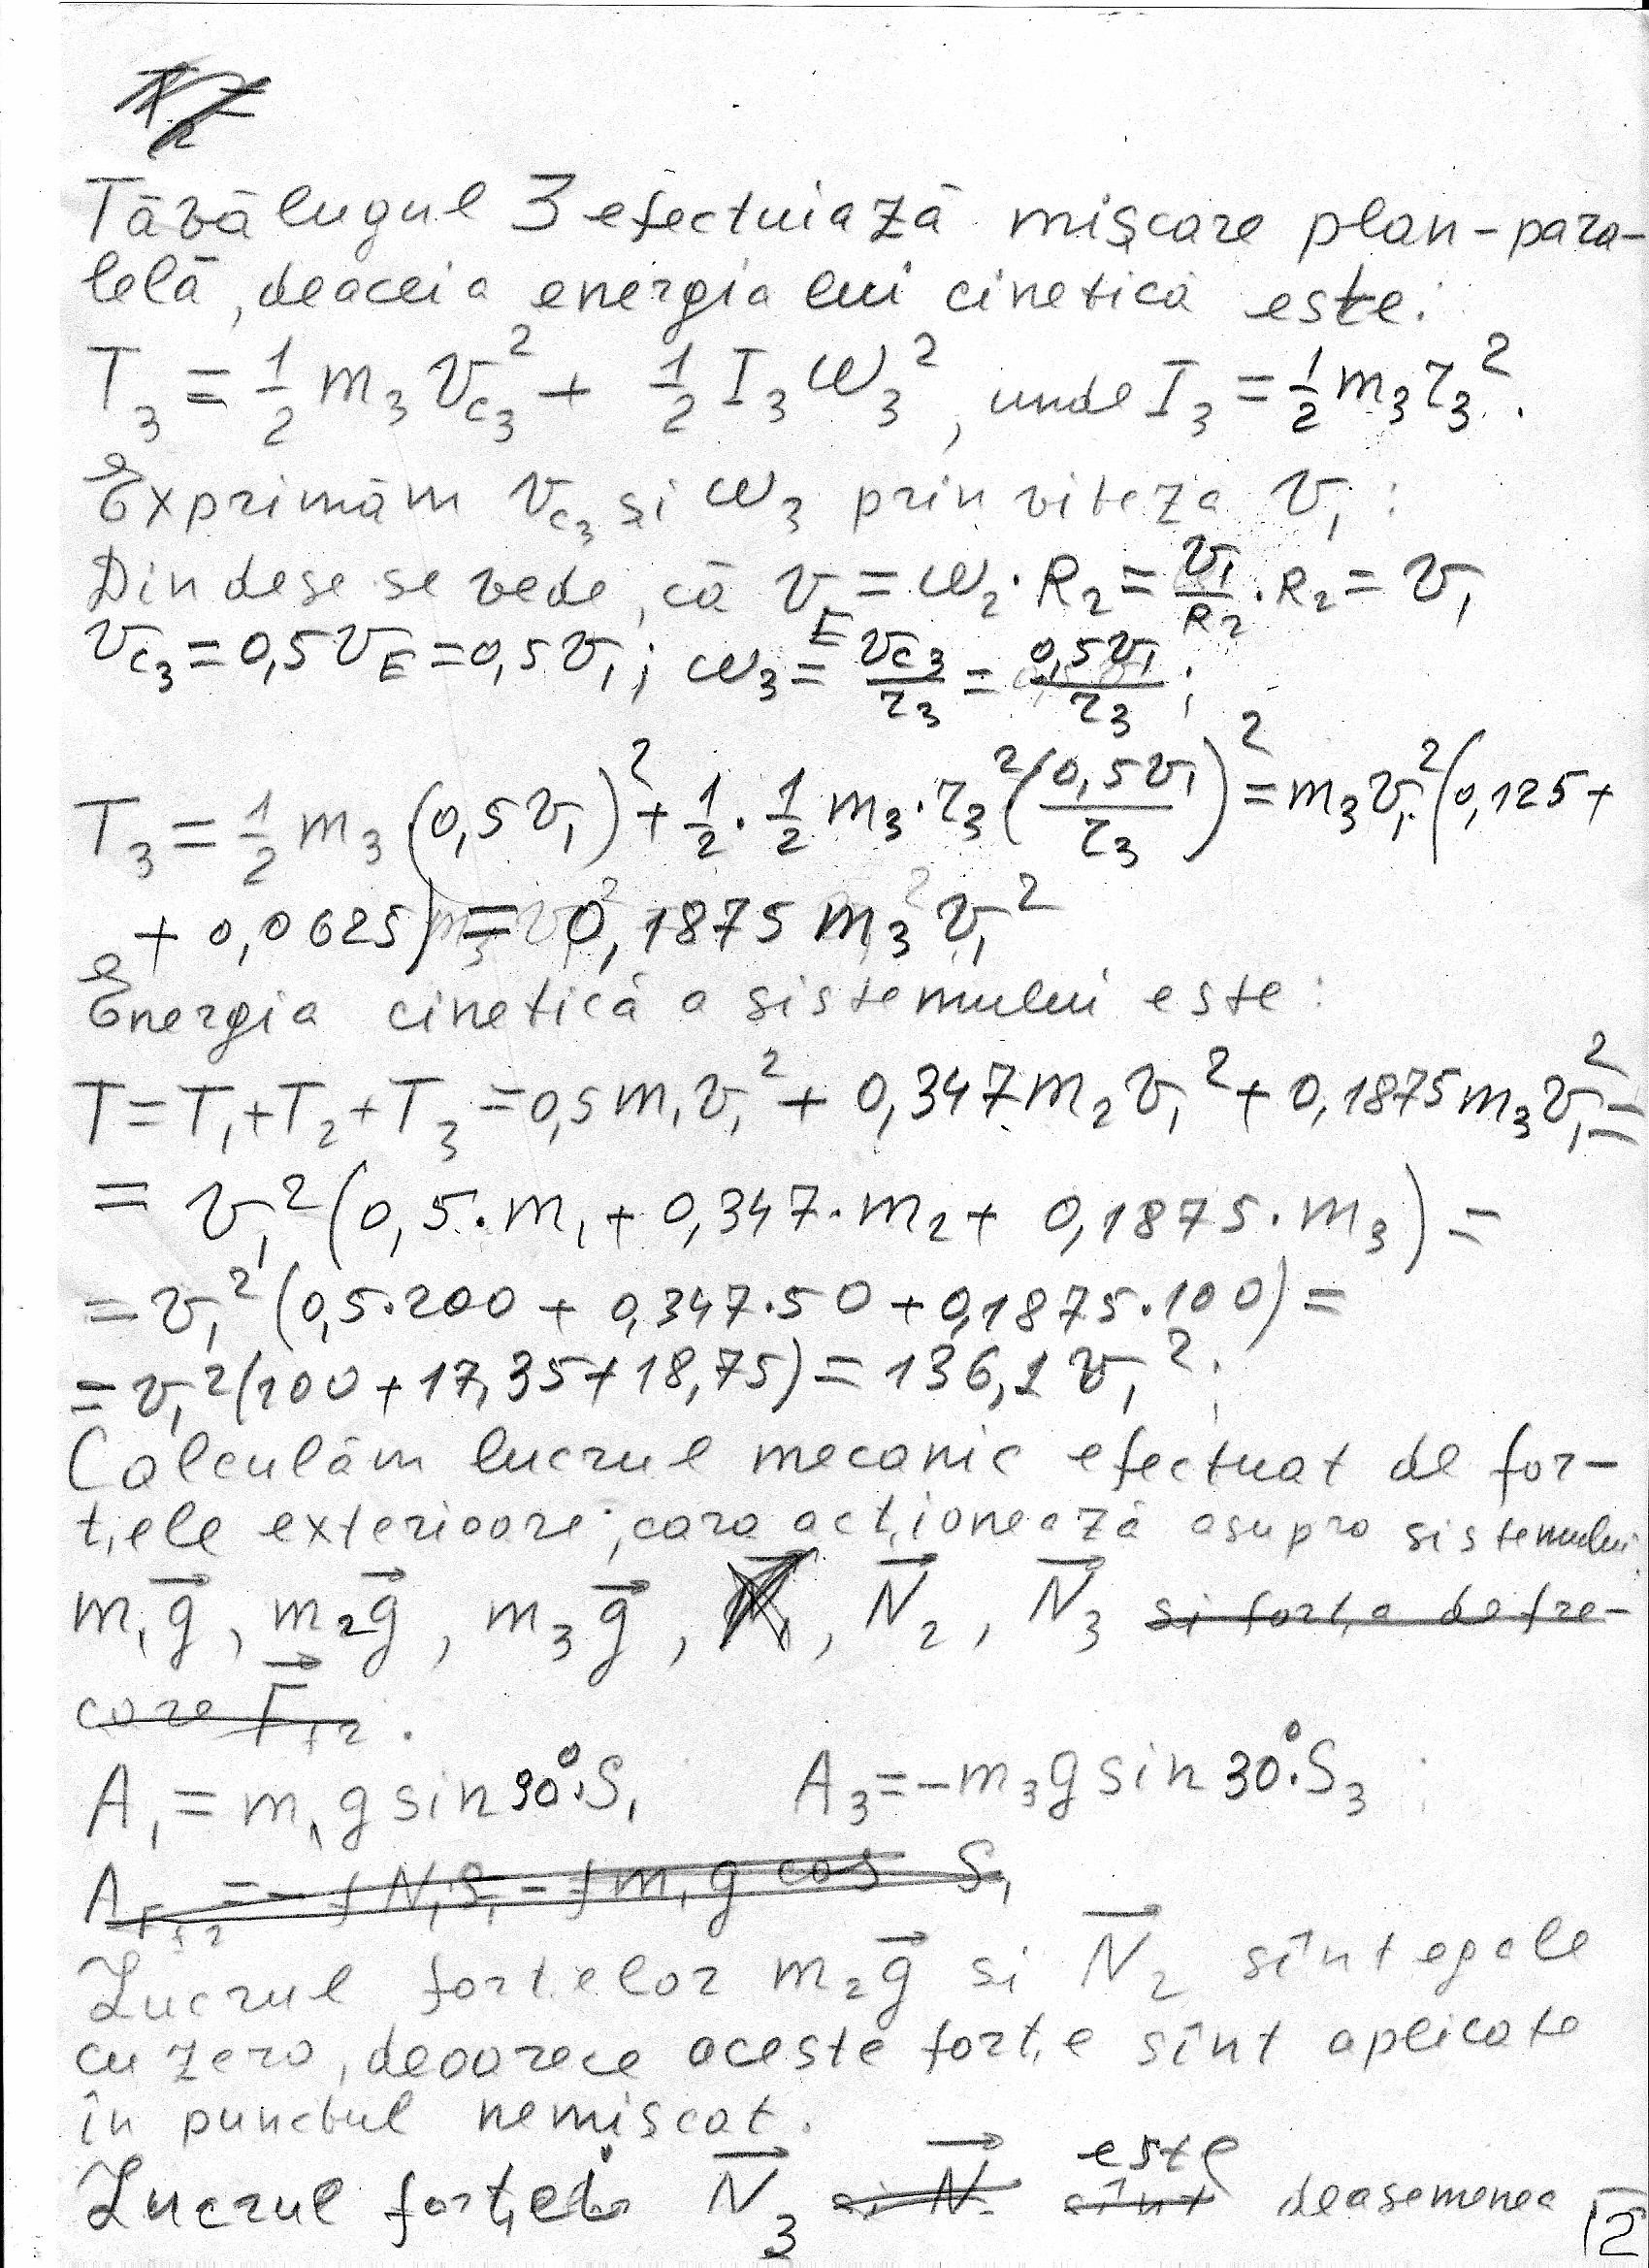 Tăvălugul 3 efectuiază mişcare plan-para-
lelă, deaceia energia lui cinetică este:
T₃ = 1/2 m₃ v_c₃² + 1/2 I₃ ω₃², unde I₃ = 1/2 m₃ r₃².
Exprimăm v_c₃ şi ω₃ prin viteza v₁:
Din dese se vede, că v_E = ω₂·R₂ = v₁/R₂·R₂ = v₁
v_c₃ = 0,5v_E = 0,5v₁; ω₃ = v_c₃/r₃ = 0,5v₁/r₃;
T₃ = 1/2 m₃ (0,5v₁)² + 1/2·1/2 m₃·r₃² (0,5v₁/r₃)² = m₃v₁²(0,125+
+ 0,0625) = 0,1875 m₃ v₁²
Energia cinetică a sistemului este:
T = T₁+T₂+T₃ = 0,5m₁v₁² + 0,347m₂v₁² + 0,1875m₃v₁² =
= v₁² (0,5·m₁ + 0,347·m₂ + 0,1875·m₃) =
= v₁² (0,5·200 + 0,347·50 + 0,1875·100) =
= v₁² (100 + 17,35 + 18,75) = 136,1 v₁²;
Calculăm lucrul mecanic efectuat de for-
ţele exterioare, cara acţionează asupra sistemului
m₁g⃗, m₂g⃗, m₃g⃗, N⃗₂, N⃗₃ si forţa de fre-
care F⃗_f2.
A₁ = m₁g sin 90°·S₁ A₃ = -m₃g sin 30°·S₃;
A_F_f2 = -fN₁S₁ = fm₁g cos S₁
Lucrul forţelor m₂g⃗ si N⃗₂ sînt egale
cu zero, deoarece aceste forţe sînt aplicate
în punctul nemişcat.
este
Lucrul forţei N⃗₃ si N⃗ sînt deasemenea
12